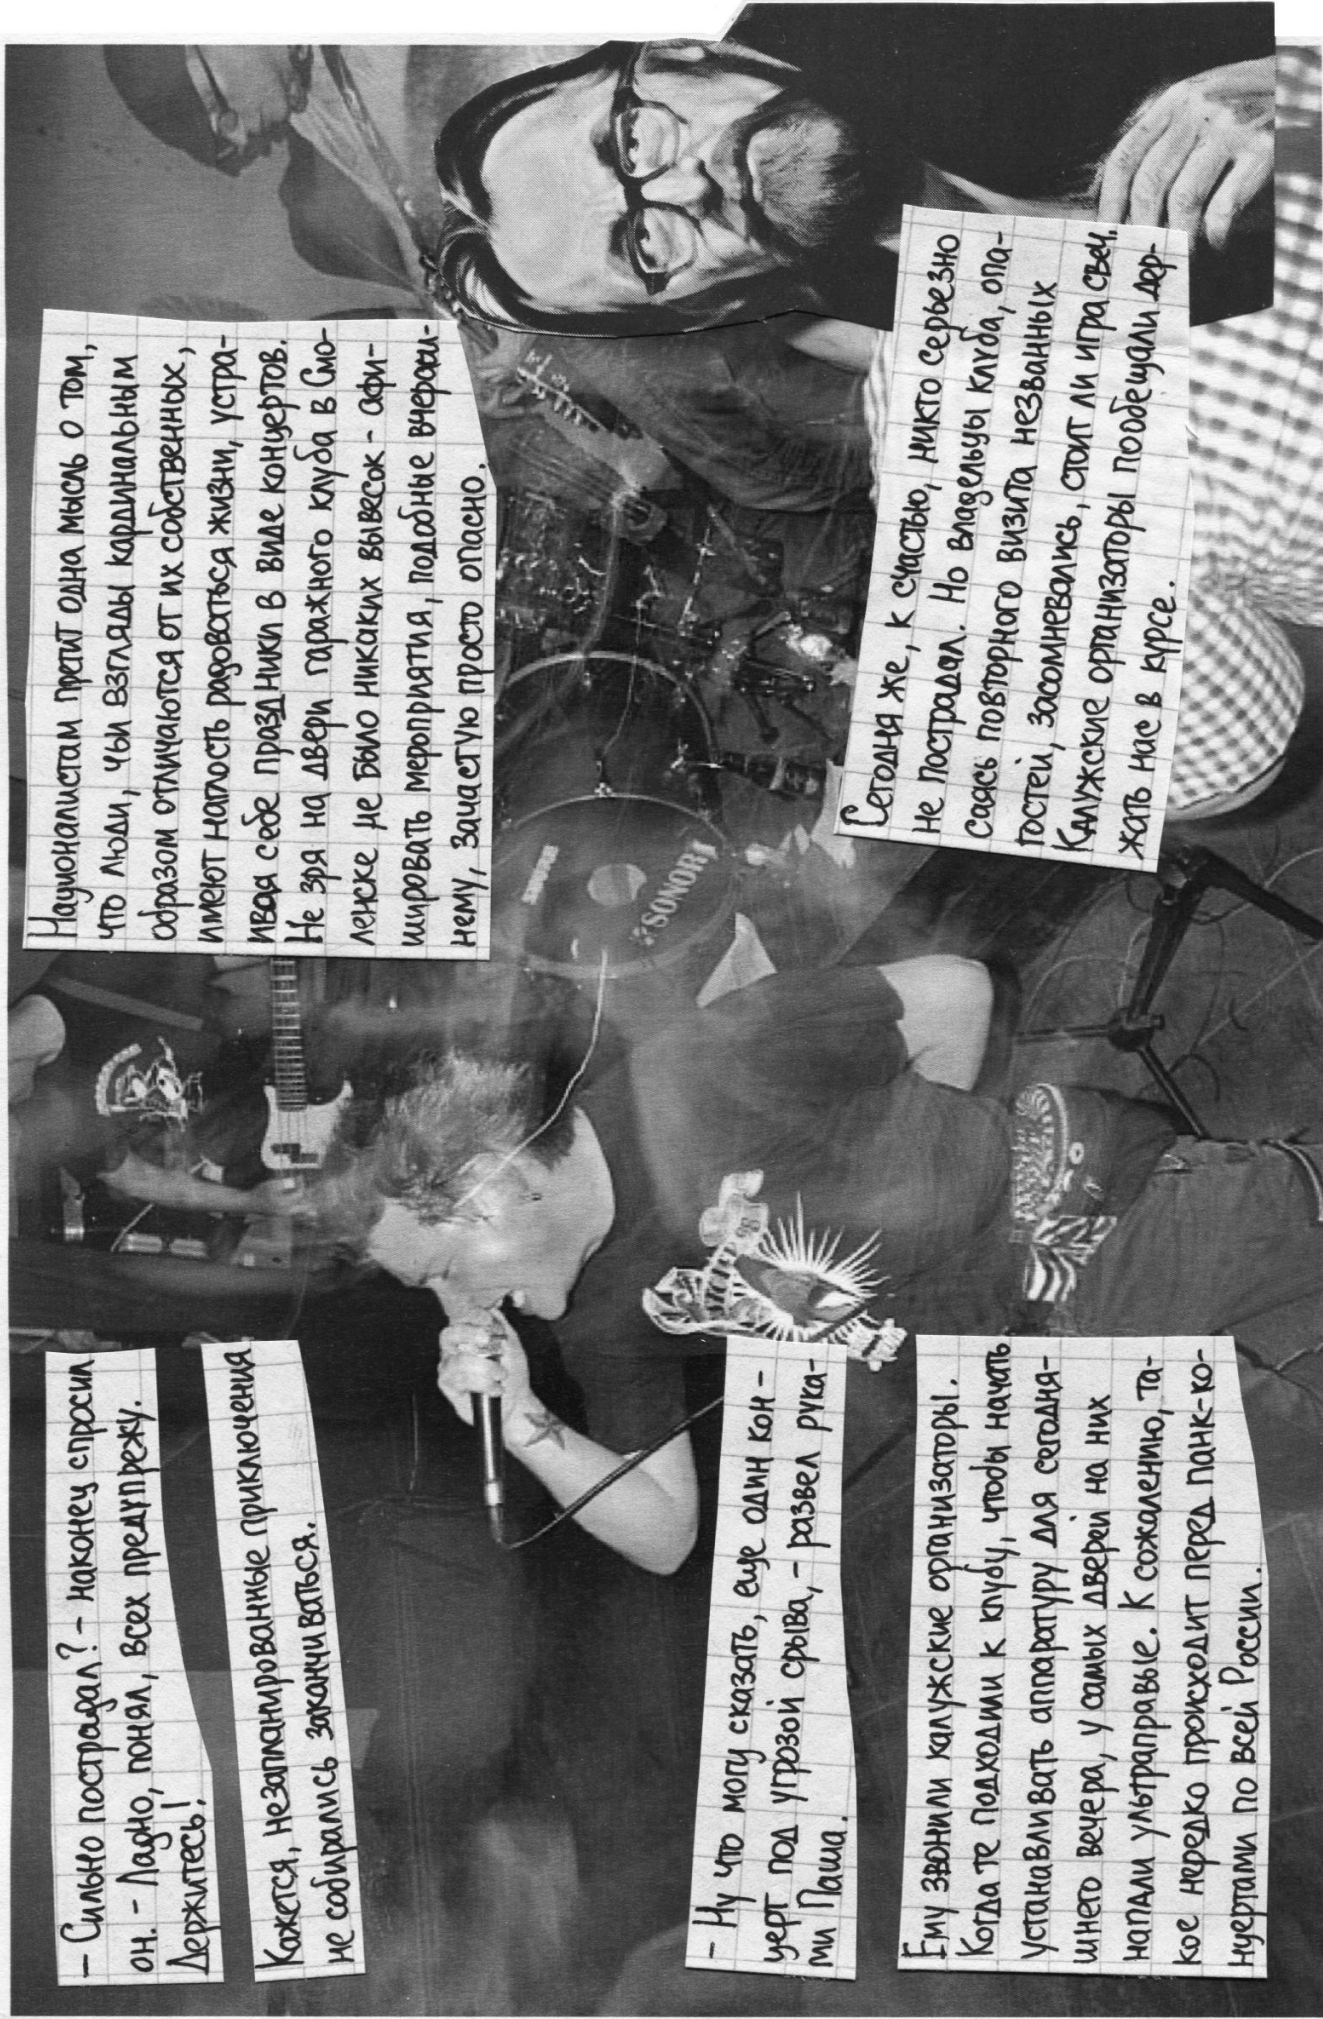 – Сильно пострадал? – наконец спросил
он. – Ладно, понял, всех предупрежу.
Держитесь!
Кажется, незапланированные приключения
не собирались заканчиваться.
– Ну что могу сказать, еще один кон-
церт под угрозой срыва, – развел рука-
ми Паша.
Ему звонили калужские организаторы.
Когда те подходили к клубу, чтобы начать
устанавливать аппаратуру для сегодня-
шнего вечера, у самых дверей на них
напали ультраправые. К сожалению, та-
кое нередко происходит перед панк-ко-
нцертами по всей России.
Националистам претит одна мысль о том,
что люди, чьи взгляды кардинальным
образом отличаются от их собственных,
имеют наглость радоваться жизни, устра-
ивая себе праздники в виде концертов.
Не зря на двери гаражного клуба в Смо-
ленске не было никаких вывесок - афи-
шировать мероприятия, подобные вчераши-
нему, зачастую просто опасно.
SONOR
Сегодня же, к счастью, никто серьезно
не пострадал. Но владельцы клуба, опа-
саясь повторного визита незванных
гостей, засомневались, стоит ли игра свеч.
Калужские организаторы пообещали дер-
жать нас в курсе.